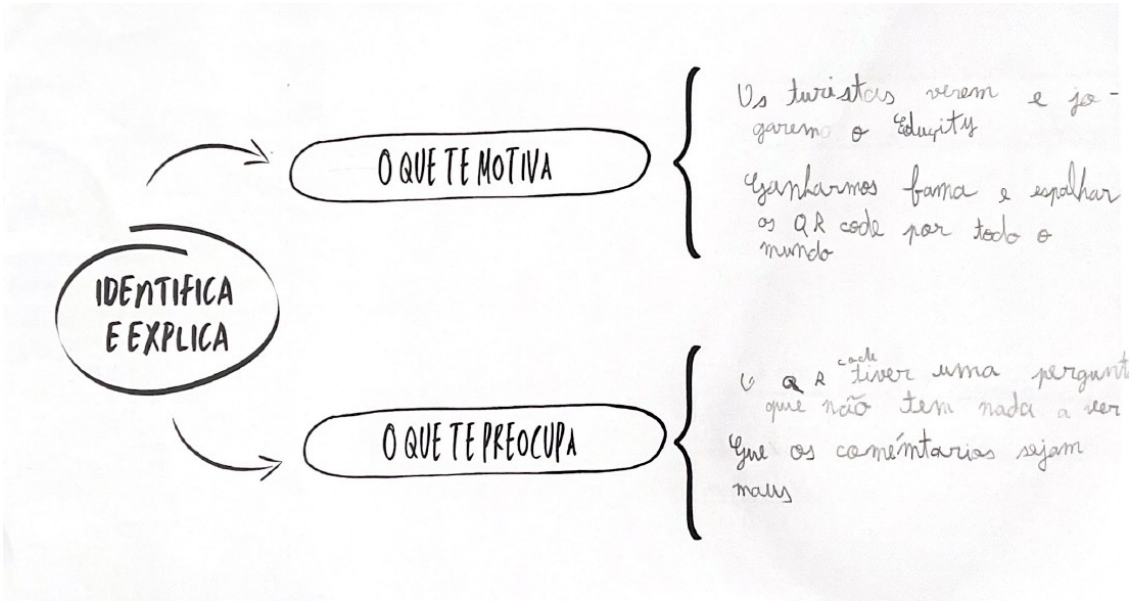 IDENTIFICA
E EXPLICA
O QUE TE MOTIVA
Os turistas verem e jo-
garem o Educity
Ganharmos fama e espalhar
os QR code por todo o
mundo
O QUE TE PREOCUPA
O QR code tiver uma pergunt
que não tem nada a ver
Que os coméntarios sejam
maus